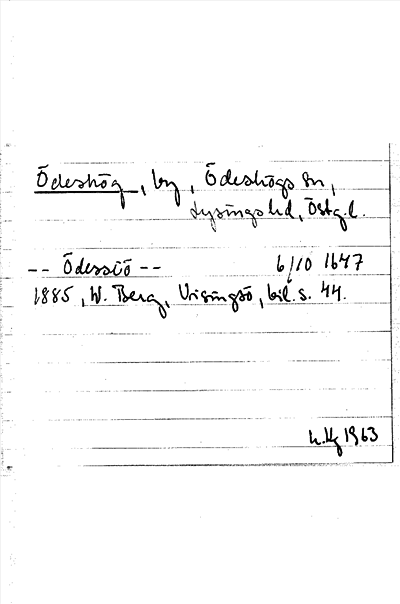 Ödeshög, by, Ödeshögs sn,
Lysings hd, Östg.l.
-- Ödessiö -- 6/10 1647
1885, W. Berg, Visingsö, bil. s. 44.
1963